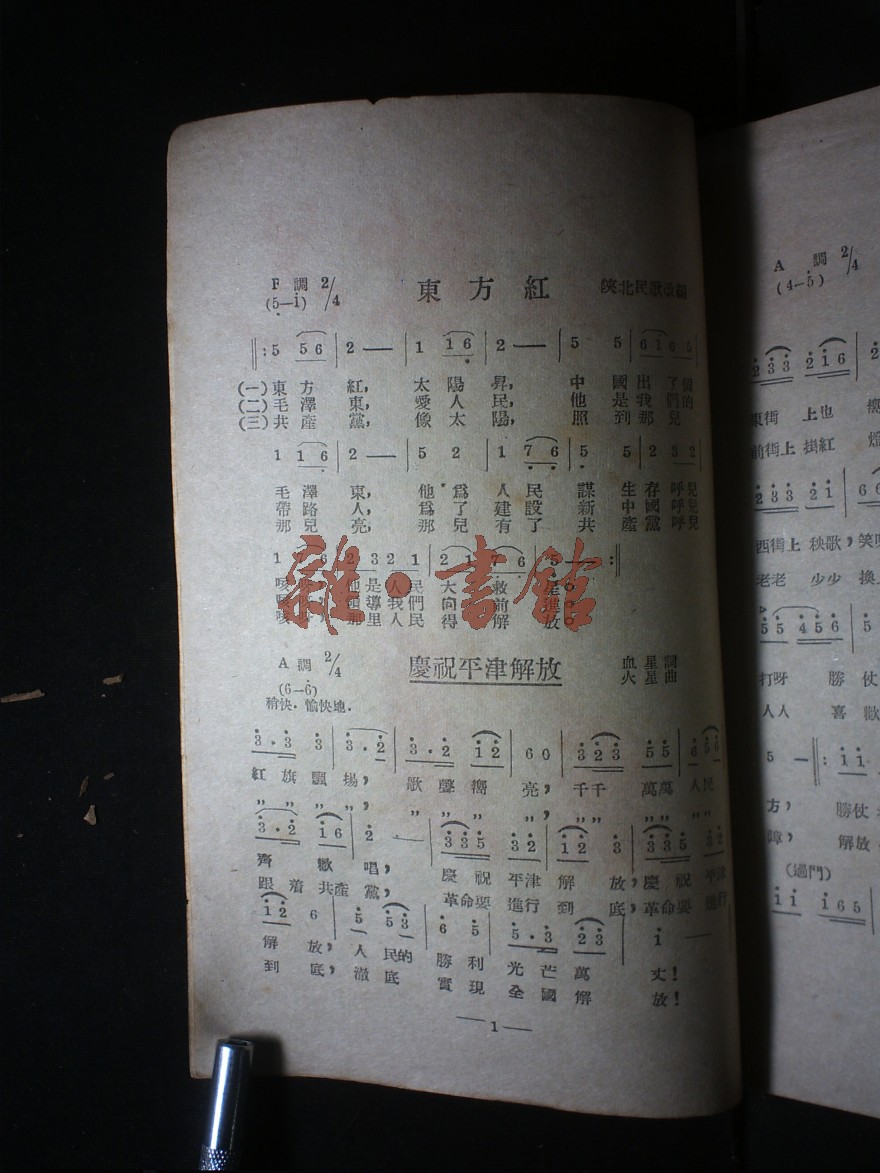 F 調 2/4 東方紅 陝北民歌改編
(5—i)
‖: 5 5 6 | 2 — | 1 1 6 | 2 — | 5 5 | 6 i 6 5
(一)東方紅, 太陽昇, 中國出了個
(二)毛澤東, 愛人民, 他是我們的
(三)共產黨, 像太陽, 照到那兒
1 1 6 | 2 — | 5 2 | 1 7 6 | 5 5 | 2 3 2
毛澤東, 他爲人民謀生存呼兒
帶路人, 爲了建設新中國呼兒
那兒亮, 那兒有了共產黨呼兒
1 6 | 2 3 2 1 | 2 1 7 6 | 5 — :‖
是人民大救星。
導我們向前進。
那里人民得解放。
雜·書館
A 調 2/4 慶祝平津解放 血星詞
(6—6) 火星曲
稍快·愉快地·
3·3 3 | 3·2 | 3·2 1 2 | 6 0 | 3 2 3 5 5 | 6 5 6
紅旗飄揚, 歌聲嚮亮, 千千萬萬人民
〃〃〃〃, 〃〃〃〃, 〃〃〃〃〃〃
3·2 1 6 | 2 — | 3 3 5 3 2 | 1 2 3 | 3 3 5 3 2
齊歡唱, 慶祝平津解放, 慶祝平津
跟着共產黨, 革命要進行到底, 革命要進行
1 2 6 | 5 5 3 | 6 5 | 5·3 2 3 | i —
解放, 人民的勝利光芒萬丈!
到底, 澈底實現全國解放!
— 1 —
A 調 2/4
(4—5)
2 3 3 2 1 6
東街上也
前街上掛紅燈
2 3 3 2 1 6
西街上秧歌,笑
老老少少換上
5 5 4 5 6 5
打呀勝仗
人人喜歡
5 — :‖: i i
方, 勝仗
障, 解放
(過門)
i i i 6 5